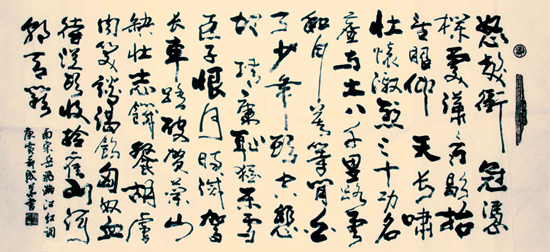 怒髮衝冠憑
欄處瀟瀟雨歇抬
望眼仰天長嘯
壯懷激烈三十功名
塵与土八千里路雲
和月莫等閒白
了少年頭空悲
切靖康恥猶未雪
臣子恨何時滅駕
長車踏破賀蘭山
缺壯志饑餐胡虜
肉笑談渴飲匈奴血
待從頭收拾舊山河
朝天闕
南宋岳飛滿江紅詞
庚寅